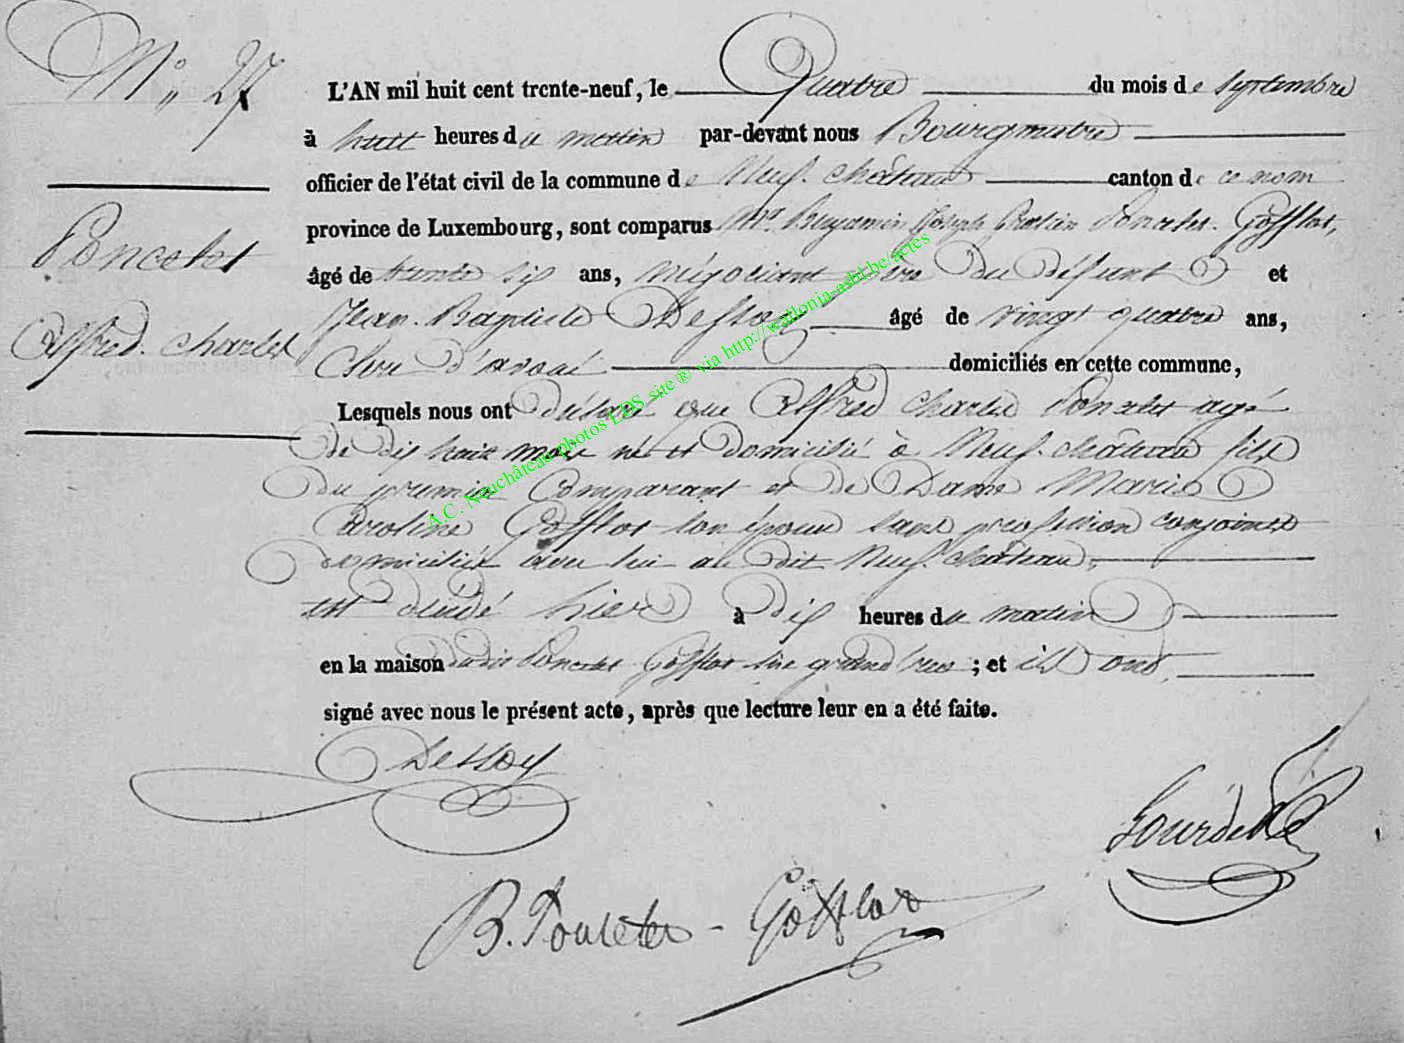 N° 27
Poncelet
Alfred. Charles
L'AN mil huit cent trente-neuf, le Quatre du mois de Septembre
à huit heures du matin par-devant nous Bourgmestre
officier de l'état civil de la commune de Neuf. château canton de ce nom
province de Luxembourg, sont comparus Mr. Benjamin Joseph Poncelet. Gofflot,
âgé de trente six ans, négociant père du défunt et
Jean. Baptiste Dessoy âgé de vingt quatre ans,
Clerc d'avoué domiciliés en cette commune,
Lesquels nous ont déclaré que Alfred Charles Poncelet agé
de dix huit mois né et domicilié à Neuf. château fils
du premier Comparant et de Dame Marie
Caroline Gofflot son épouse sans profession conjoints
domiciliés avec lui au dit Neuf. château.
est décédé hier à dix heures du matin
en la maison dudit Poncelet Gofflot sise grand'rue ; et ils ont
signé avec nous le présent acte, après que lecture leur en a été faite.
Dessoy
B. Poncelet - Gofflot
A.C. Neufchâteau photos LDS site ® via http://wallonia-asbl.be/actes